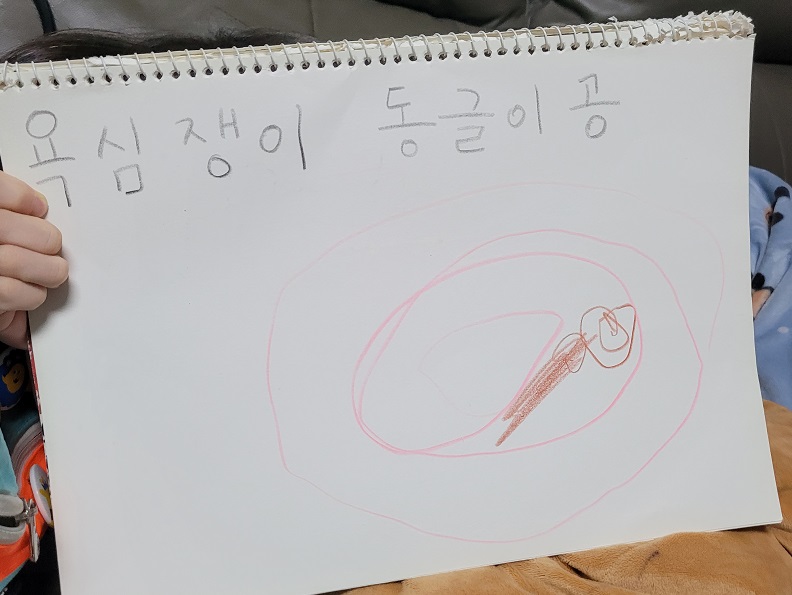 욕심쟁이 동글이공